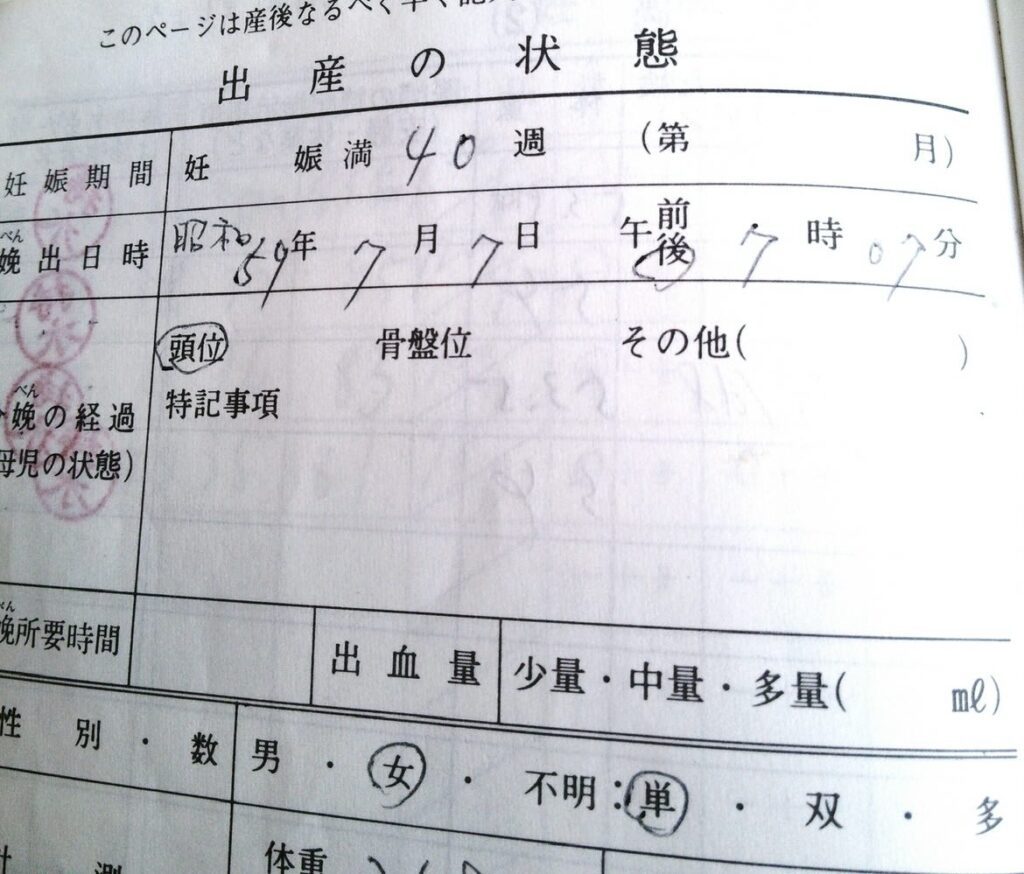 このページは産後なるべく早く記入
出産の状態
妊娠期間 妊娠満 40 週 (第 月)
べん
娩出日時 昭和59年 7月 7日 午前後 7時 07分
頭位 骨盤位 その他( )
特記事項
べん
娩の経過
母児の状態)
べん
娩所要時間 出血量 少量・中量・多量( ml)
性別・数 男・女・不明:単・双・多
計測 体重